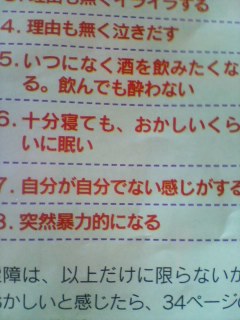 理由も無くイライラする
4. 理由も無く泣きだす
5. いつになく酒を飲みたくな
る。飲んでも酔わない
6. 十分寝ても、おかしいくら
いに眠い
7. 自分が自分でない感じがする
8. 突然暴力的になる
障は、以上だけに限らないか
おかしいと感じたら、34ページの